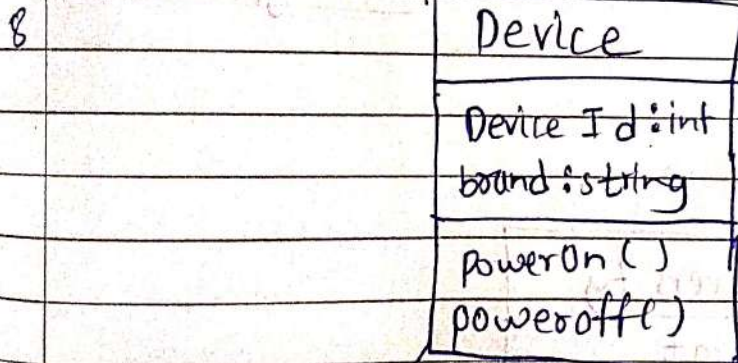 8
Device
Device Id:int
bound:string
powerOn()
poweroff()